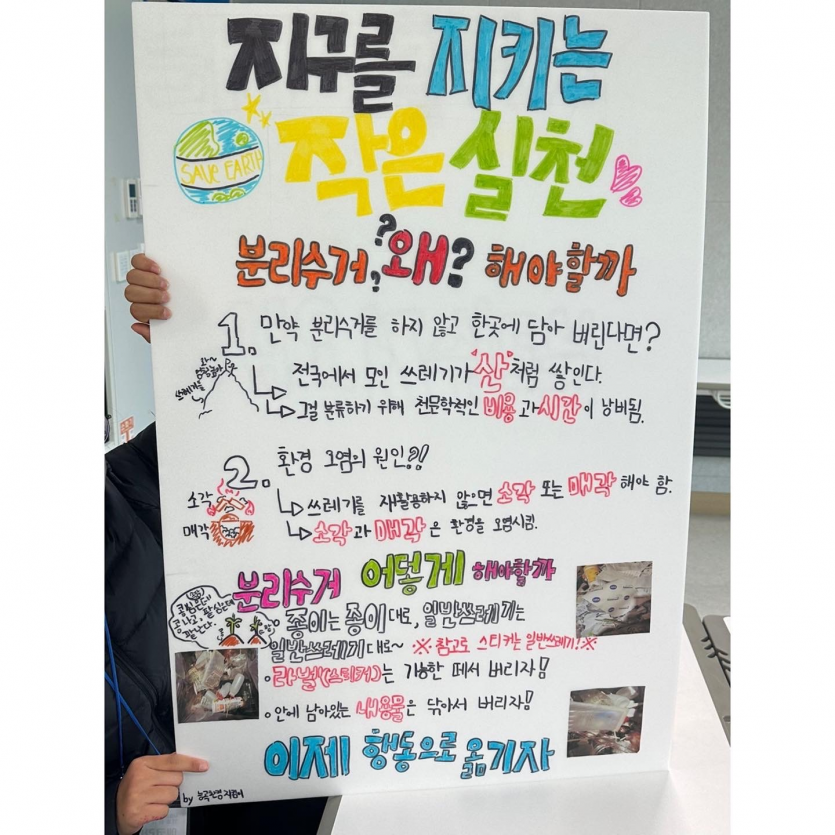 지구를 지키는
SAVE EARTH
작은 실천
분리수거 ? ? 왜? 해야할까
1. 만약 분리수거를 하지 않고 한곳에 담아 버린다면?
전국에서 모인 쓰레기가 "산"처럼 쌓인다.
그걸 분류하기 위해 천문학적인 비용과 시간이 낭비됨.
2. 환경 오염의 원인?!
소각
쓰레기를 재활용하지 않으면 소각 또는 매각 해야 함.
매각
소각과 매각은 환경을 오염시킴.
분리수거 어떻게 해야할까
콩심은데
콩나고, 팥심은데
팥난다.
종이는 종이대로, 일반쓰레기는
일반쓰레기대로~ ※참고로 스티커는 일반쓰레기!※
라벨(스티커)는 가능한 떼서 버리자!
안에 남아있는 내용물은 닦아서 버리자!
이제 행동으로 옮기자
by